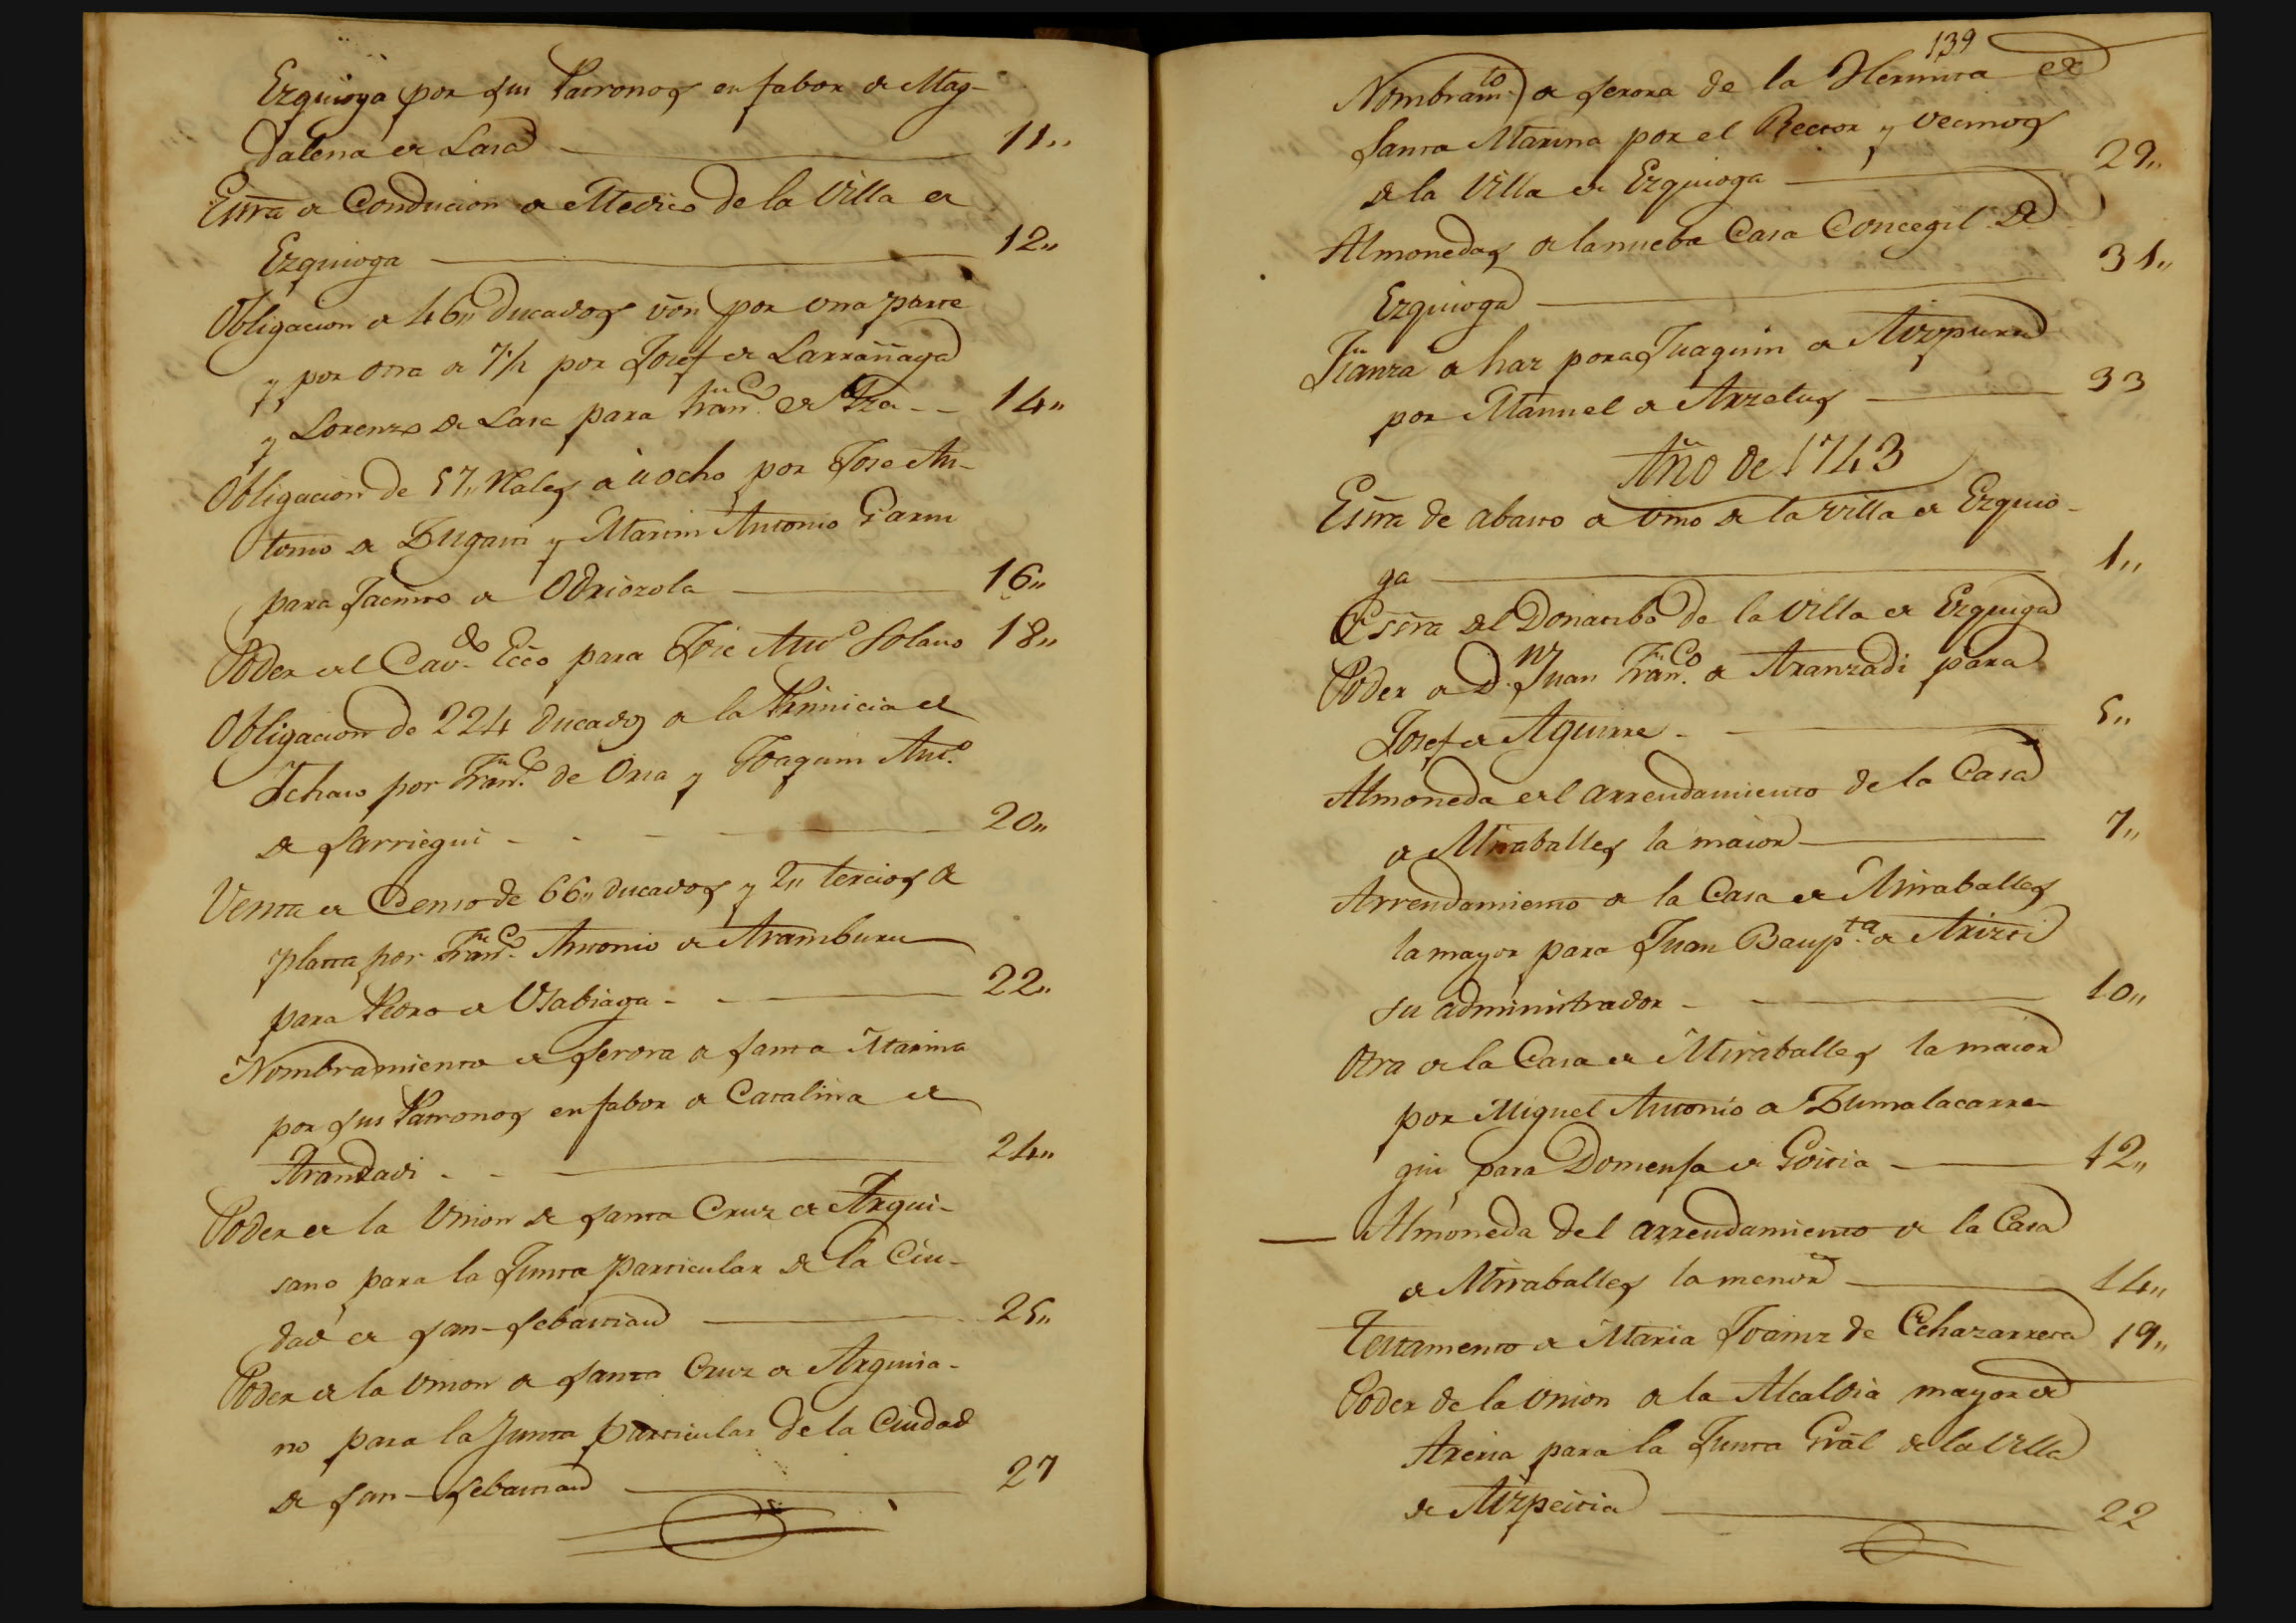 Ezquioga por sus Patronos en fabor de Mag-
dalena de Lasa 11,,
Essra de Conducion de Medico de la Villa de
Ezquioga 12,,
Obligacion de 46,, ducados von por una parte
y por otra de 7 1/2 por Josef de Larrañaga
y Lorenzo de Lasa para Fran.co de 14,,
Obligacion de 57,, Rales de a ocho por Jose An-
tonio de Zugasti y Martin Antonio Garin
para Jacinto de Odriozola 16,,
Poder del Cav.do Ecco para Jose Anto Solano 18,,
Obligacion de 224 ducados a la Primicia de
Ichaso por Fran.co de Oria y Joaquin Anto.
de Sarriegui 20,,
Venta de Censo de 66,, ducados y 2,, tercios de
platta por Fran.co Antonio de Aramburu
para Pedro de Usabiaga 22,,
Nombramiento de serora de santa Marina
por sus Patronos en fabor de Catalina de
Aranzadi 24,,
Poder de la Union de santa Cruz de Argui-
sano para la Junta particular de la Ciu-
dad de san-sebastian 25,,
Poder de la Union de santa Cruz de Arguisa-
no para la Junta particular de la Ciudad
de san-sebastian 27
139
Nombram.to de serora de la Hermita de
santa Marina por el Rector y vecinos
de la Villa de Ezquioga 29,,
Almonedas de la nueba Casa Concegil de
Ezquioga 31,,
Fianza de haz por Juaquin de Aizpuru
por Manuel de Arzelus 33
Año de 1743
Essra de abasto de vino de la villa de Ezquio-
ga 1,,
Essra del Donatibo de la Villa de Ezquiga
Poder de D.n Juan Fran.co de Aranzadi para
Josef de Aguirre 5,,
Almoneda del arrendamiento de la Casa
de Miraballes la maior 7,,
Arrendamiento de la Casa de Miraballes
la mayor para Juan Baup.ta de Arizti
su administrador 10,,
Otra de la Casa de Miraballes la maior
por Miguel Antonio de Zumalacarre-
gui para Domensa de Goitia 12,,
Almoneda del arrendamiento de la Casa
de Miraballes la menor 14,,
Testamento de Maria Joainz de Echazarreta 19,,
Poder de la Union de la Alcaldia mayor de
Areria para la Junta Gral de la Villa
de Aizpeitia 22